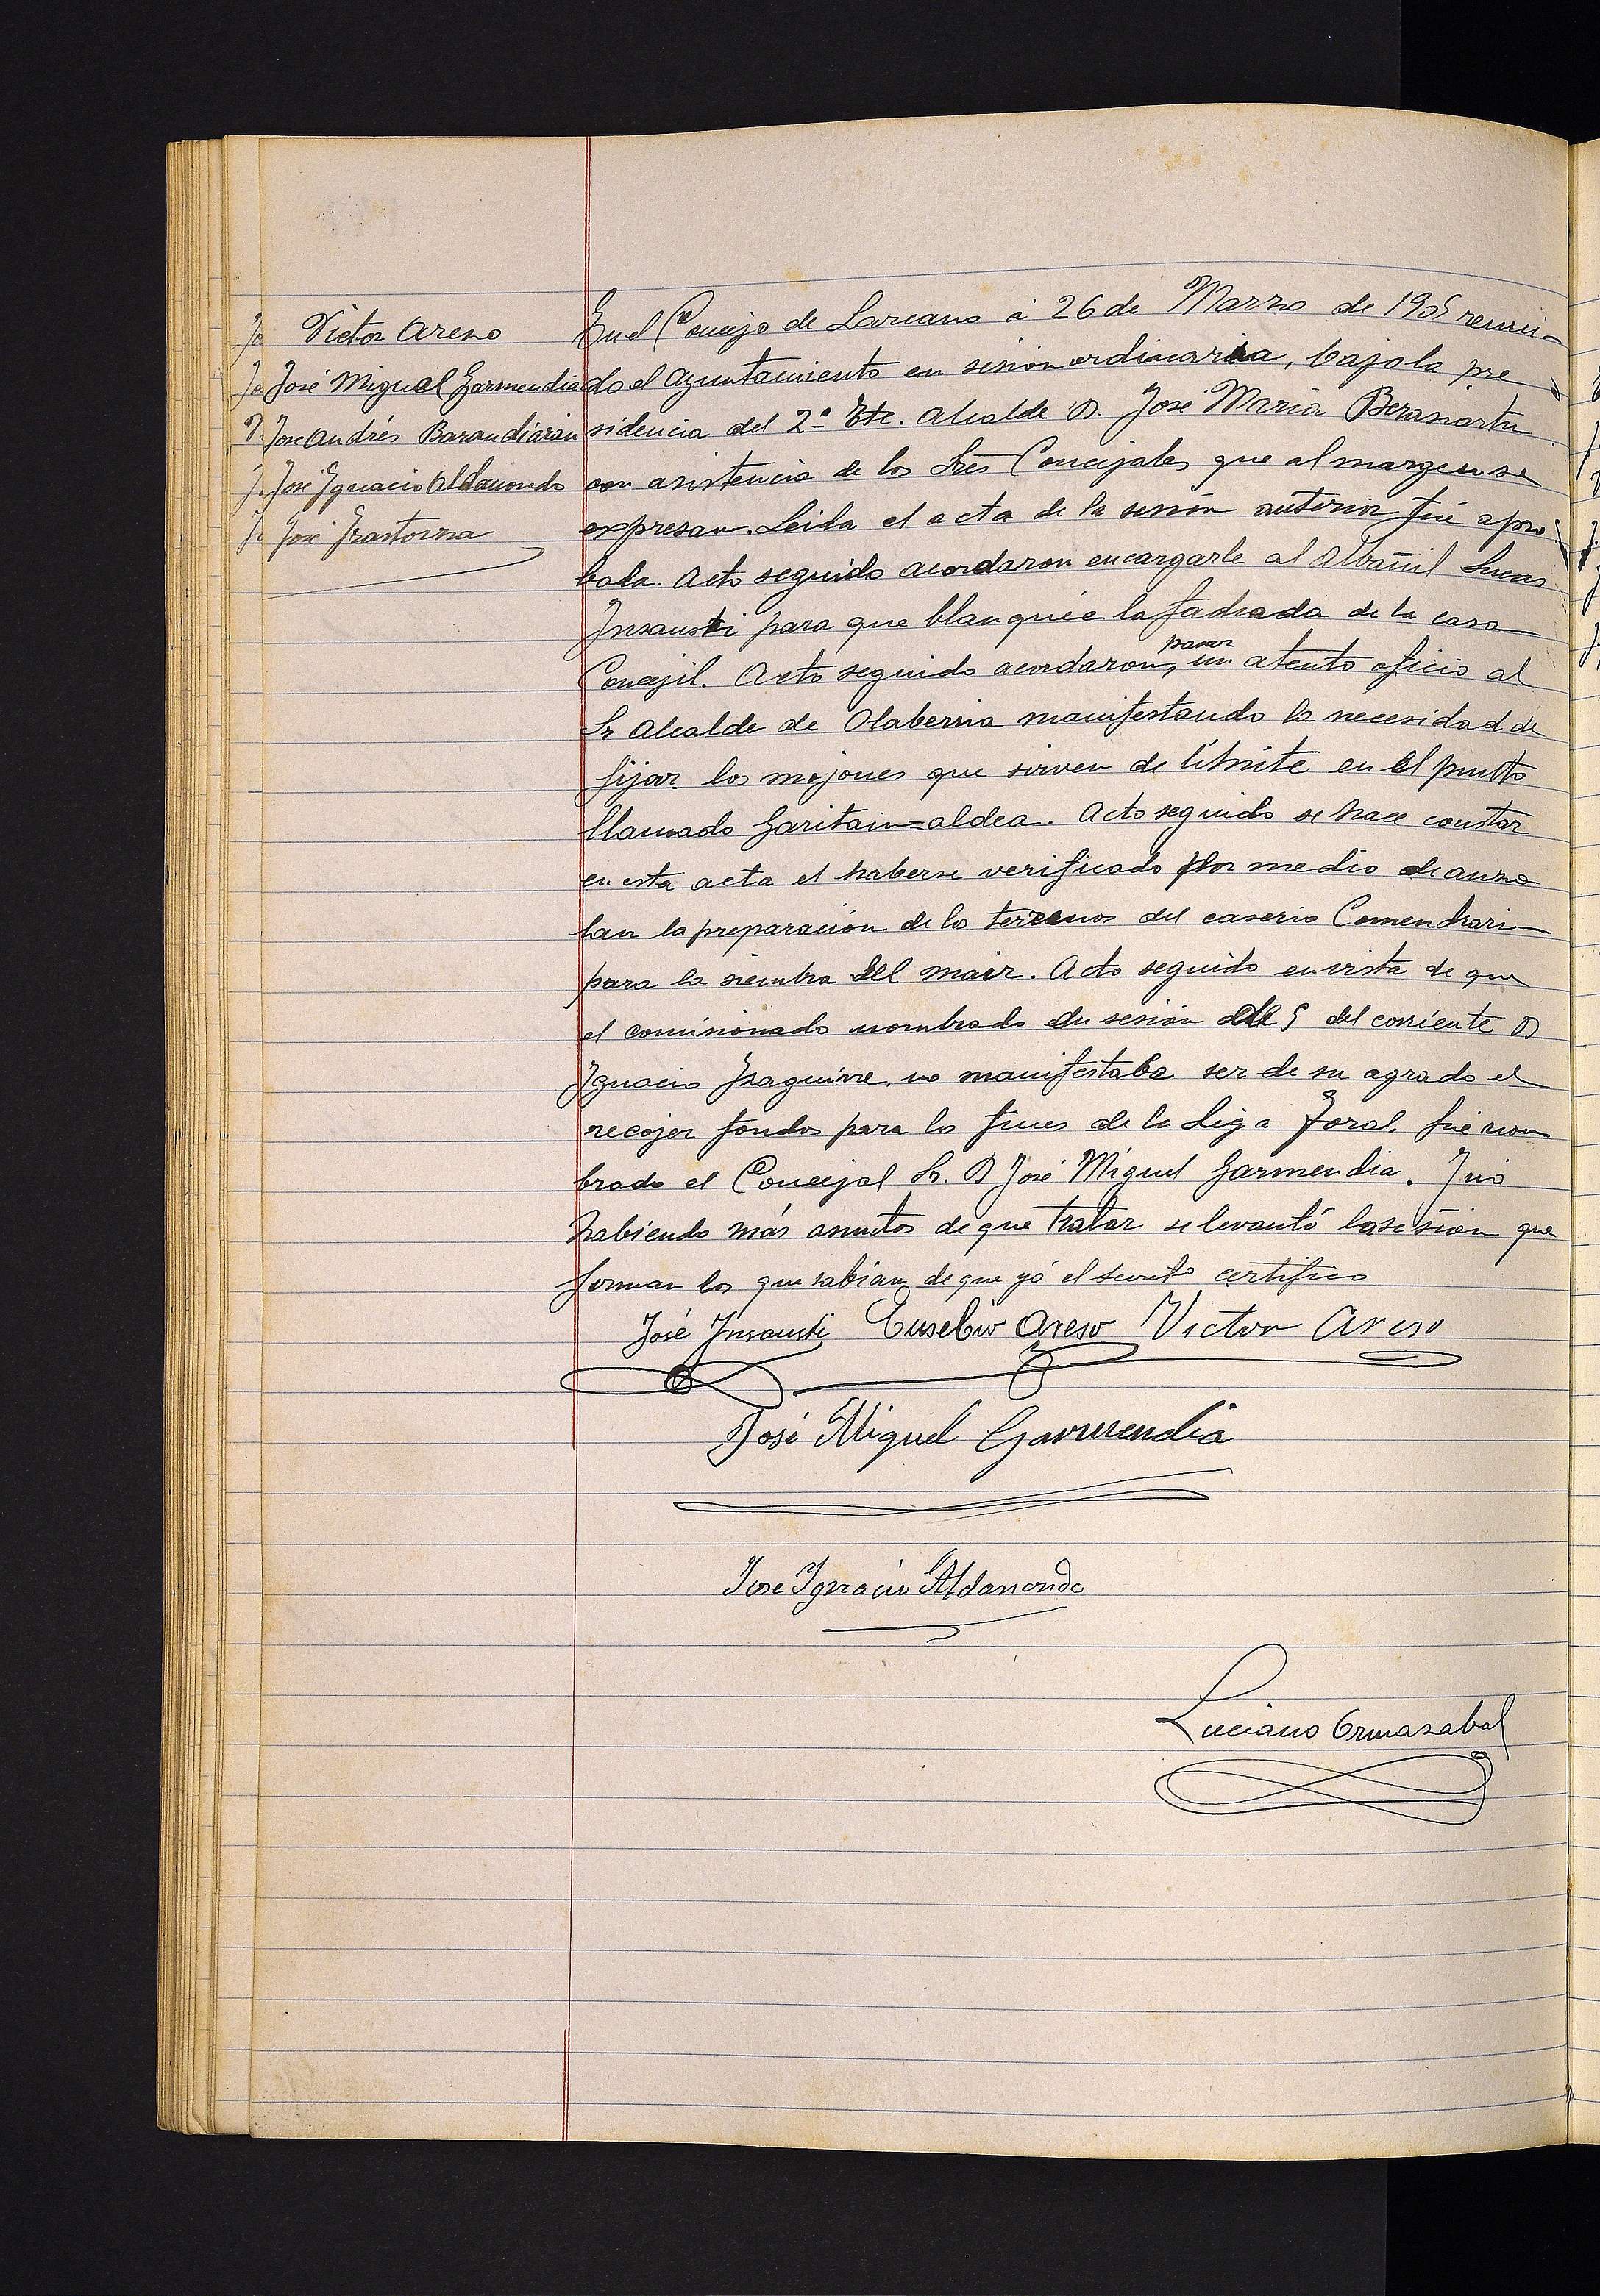 D. Victor Areso
D. José Miguel Garmendia
D. Jose Andrés Barandiaran
D. José Ygnacio Aldamondo
D. José Yrastorza
En el Concejo de Lazcano á 26 de Marzo de 1905 reuni-
do el Ayuntamiento en sesion ordinaria, bajo la pre
sidencia del 2º Tte. Alcalde D. José Maria Berasiartu
con asistencia de los Sres Concejales que al margen se
expresan. Leida el acta de la sesión anterior fué apro
bada. Acto seguido acordaron encargarle al Albañil Lucas
Ynsausti para que blanquée la fachada de la casa
Concejil. Acto seguido acordaron, pasar un atento oficio al
Sr Alcalde de Olaberria manifestando la necesidad de
fijar los mojones que sirven de límite en el punto
llamado Garitain=aldea. Acto seguido se hace constar
en esta acta el haberse verificado por medio de auzo
lan la preparación de los terrenos del caserio Comendrari
para la siembra del maiz. Acto seguido en vista de que
el comisionado nombrado en sesión del 5 del corriente D
Ygnacio Yzaguirre, no manifestaba ser de su agrado el
recojer fondos para los fines de la Liga Foral, fué nom
brado el Concejal Sr. D José Miguel Garmendia. Y nó
habiendo más asuntos de que tratar se levantó la sesión que
forman los que sabian, de que yó el Secretº certifico
José Ynsausti Eusebio Areso Victor Areso
José Miguel Garmendia
Jose Ygnacio Aldamondo
Luciano Ormazabal